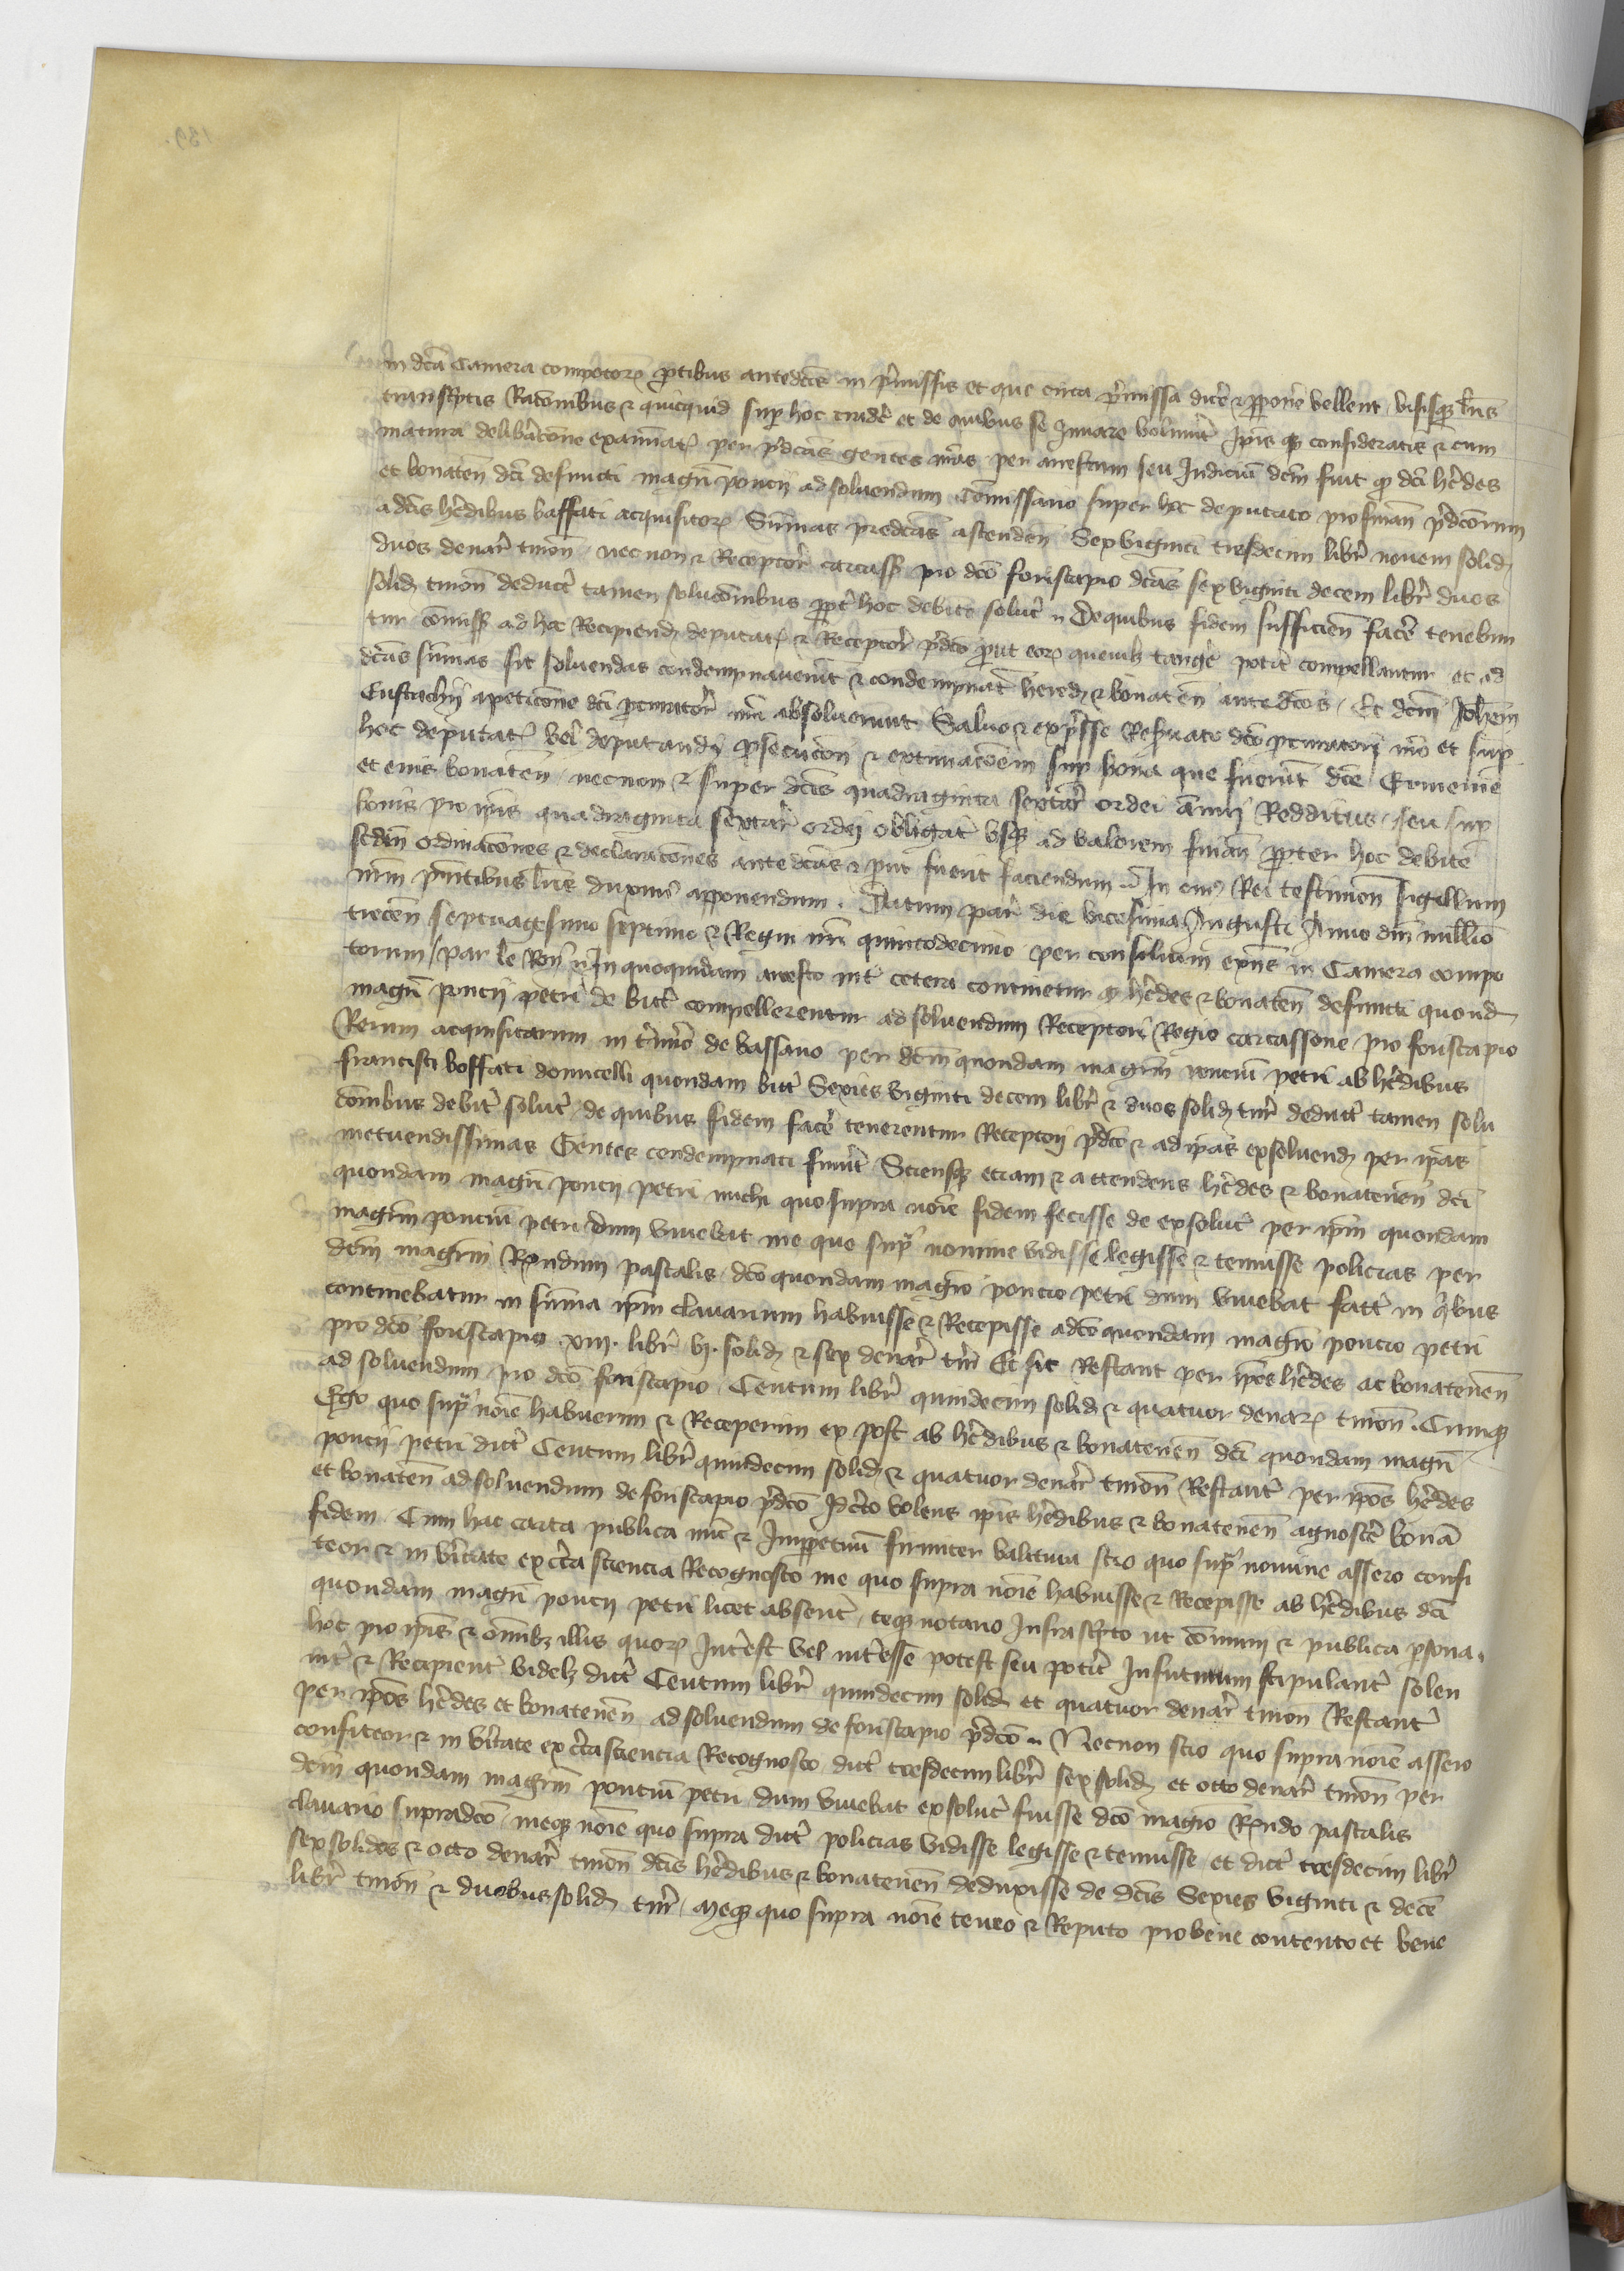 in dca Camera compotor ptibus antedcis in pmissis et que circa pmissa dice & pponere vellent visisq lris
transcptis Racionibus & quicquid sup hoc tradere et de quibus se Juvare voluerit ipis q consideratis & cum
matura deliberacone examinat per pdcas gentes nras per arrestum seu Judicium dcm fuit q dci hedes
et bonaten dci defuncti magri poncii ad solvendum Comissario super hoc deputato pro finan pdcorum
a dcis hedibus baffati acquisitor Sumas predcas ascenden Sexviginti tresdecim libr novem solid
duos denar turon necnon & Receptor carcass pro dco foriscapio dcas sexviginti decem libr duos
solid turon deduct tamen solucionibus ppt hoc debite solut De quibus fidem sufficien face tenebun
tur comiss ad hoc Recipiend deputat & Receptor pdco put eor quemlibz tange potit compellantur et ad
dcas sumas sic solvendas condempnaverunt & condempnat hered & bonaten ante dcos Et dcm Johem
Eustachii a peticone dci pcurator nri absolverunt Salvo & expsse Reservato dco pcuratori nro et sup
hoc deputat vel deputandis psecucon & extimacoem sup bona que fuerut dce Ermenie
et eius bonaten necnon & super dcis quadraginta sextar ordei annui Redditus seu sup
bonis pro ipis quadraginta sextar ordei obligat usq ad valorem finan ppter hoc debite
scdm ordinacones & declaracones ante dcas & put fuerit faciendum In cuius Rei testimon sigillum
nrm pntibus lris duximus apponendum Datum par die vicesima Augusti Anno dni millio
trecen septuagesimo septimo & Regni nri quintodecimo per consilium exns in Camera compo
torum par le Roy In quoquidam arresto int cetera continetur q hedes & bonaten defuncti quond
magri poncii petri de bitt compellerentur ad solvendum Receptori Regio carcassone pro foriscapio
Rerum acquisitarum in tmino de bassano per dcm quondam magrm poncium petri ab hedibus
francisci boffati domicelli quondam bitt Sexies viginti decem libr & duos solid turn deduct tamen solu
conibus debite solut de quibus fidem face tenerentur Receptori pdco & ad ipas exsolvend per ipas
metuendissimas Gentes condempnati fuerut Sciensq etiam & attendens hedes & bonatenen dci
quondam magri poncii petri michi quo supra noie fidem fecisse de exsolut per ipm quondam
magrm poncium petri dum vivebat me quo sup nomine vidisse legisse & tenuisse policias per
dcm magrm Rndum pascalis dco quondam magro poncio petri dum vivebat fact in qibus
continebatur in suma ipm clavarium habuisse & Recepisse a dco quondam magro poncio petri
pro dco foriscapio xiii libr vi solid & sex denar turn Et sic Restant per ipos hedes ac bonatenen
ad solvendum pro dco foriscapio Centum libr quindecim solid & quatuor denar turon Cumq
Ego quo sup noie habuerim & Receperim ex post ab hedibus & bonatenen dci quondam magri
poncii petri dict Centum libr quindecim solid & quatuor denar turon Restant per ipos hedes
et bonaten ad solvendum de foriscapio pdco Idcirco volens ipis hedibus & bonatenen agnosce bona
fidem Cum hac carta publica nunc & Imppetuum firmiter valitura scio quo sup nomine assero confi
teor & in veritate ex certa sciencia Recognosco me quo supra noie habuisse & Recepisse ab hedibus dci
quondam magri poncii petri licet absent teq notario Infrascripto ut comuni & publica psona
hoc pro ipis & omibz illis quor Interest vel interesse potest seu poterit Infuturum stipulant solen
nit & Recipient videlz dict Centum libr quindecim solid et quatuor denar turon Restant
per ipos hedes et bonatenen ad solvendum de foriscapio pdco Necnon scio quo supra noie assero
confiteor & in veritate ex certa sciencia Recognosco dict tresdecim libr sex solid et octo denar turon per
dcm quondam magrm poncium petri dum vivebat exsolut fuisse dco magro Rndo pascalis
clavario supradco meq noie quo supra dict policias vidisse legisse & tenuisse et dict tresdecim libr
sex solidos & octo denar turon dcis hedibus & bonatenen deduxisse de dcis Sexies viginti & dece
libr turon & duobus solid turn Meq quo supra noie teneo & Reputo pro bene contento et bene